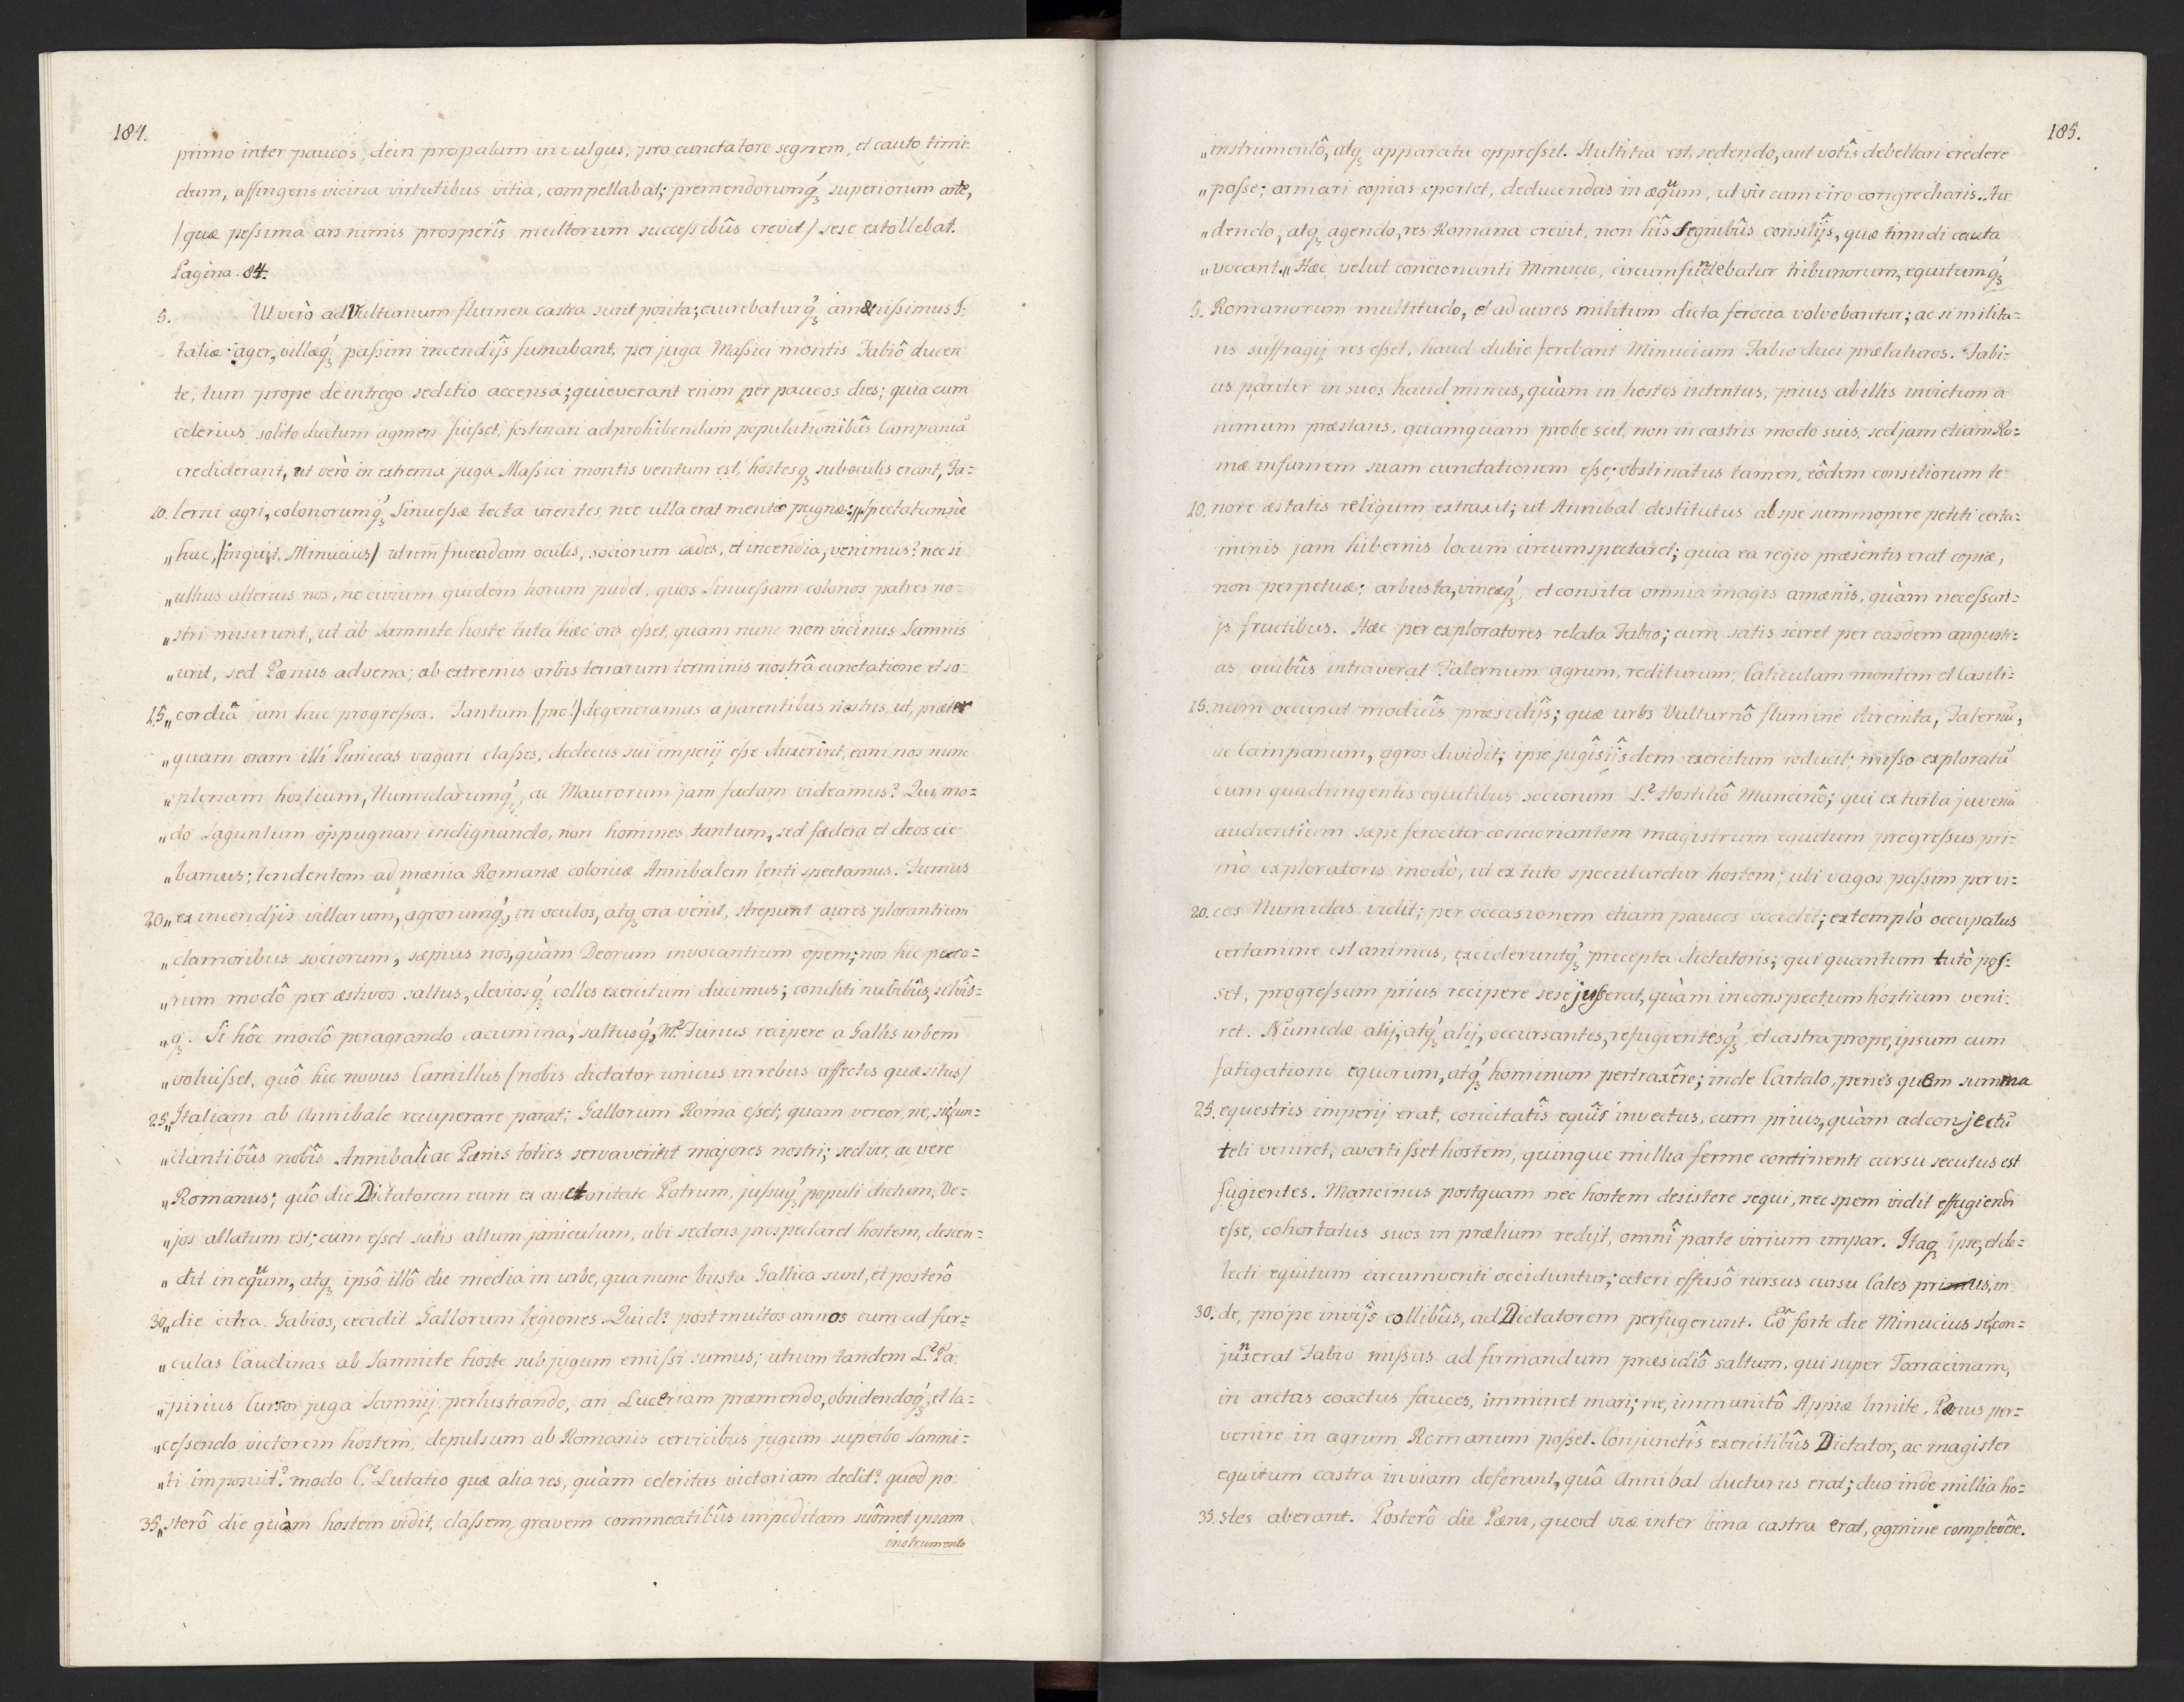 184.
primo inter paucos, dein propalam in vulgus, pro cunctatore segnem, et cauto timi=
dum, affingens vicina virtutibus vitia, compellabat; premendorumq́ȝ superiorum arte,
/quæ peſsima ars nimis prosperîs multorum succeſsibûs crevit/ sese extollebat.
Pagina. 84.
5. Ut verò ad Vulturnum flumen castra sunt posita; exurebaturq́ȝ amæniſsimus I=
taliæ ager, villæq́ȝ paſsim incendijs fumabant, per juga Maſsici montis Fabiô ducen
te, tum prope de integro seditio accensa; quieverant enim per paucos dies; quia cum
celerius solito ductum agmen fuiſset, festinari ad prohibendam populationibûs Campaniā
crediderant, ut verò in extrema juga Maſsici montis ventum est, hostesqȝ sub oculis erant, Fa=
10. lerni agri, colonorumq́ȝ Sinueſsæ tecta urentes, nec ulla erat mentio pugnæ; „Spectatumnè
„huc, /inquit, Minucius/ ut rem fruendam oculis, sociorum cædes, et incendia, venimus? nec si
„ullius alterius nos, ne civium quidem horum pudet, quos Sinueſsam colonos patres no=
„stri miserunt, ut ab Samnite hoste tuta hæc ora eſset, quam nunc non vicinus Samnis
„urit, sed Pænus advena; ab extremis orbis terrarum terminis nostrâ cunctatione et so=
15. „cordiâ jam huc progreſsos. Tantum /pro!/ degeneramus a parentibus nostris, ut, præter
„quam oram illi Punicas vagari claſses, dedecus sui imperij eſse duxerint, eam nos nunc
„plenam hostium, Numidarumq́ȝ, ac Maurorum jam factam videamus? Qui, mo=
„do Saguntum oppugnari indignando, non homines tantum, sed fædera et deos cie
„bamus; tendentem ad mænia Romanæ coloniæ Annibalem lenti spectamus. Fumus
20. „ex incendjis villarum, agrorumq́ȝ, in oculos, atqȝ ora venit, strepunt aures plorantium
„clamoribus sociorum, sæpius nos, quàm Deorum invocantium opem; nos hic pecora=
„rum modô per æstivos saltus, deviosq́ȝ colles exercitum ducimus; conditi nubibûs, silvîs=
„qȝ. Si hôc modô peragrando cacumina, saltusq́ȝ, M.² Furius recipere a Gallis urbem
„voluiſset, quô hic novus Camillus /nobis dictator unicus in rebus affectis quæsitus/
25. „Italiam ab Annibale recuperare parat; Gallorum Roma eſset; quam vereor, ne, sic cun=
„ctantibûs nobîs Annibali ac Pænis toties servaverint majores nostri; sed vir, ac vere
„Romanus; quô die Dictatorem eum ex auctoritate Patrum, juſsuq́ȝ populi dictum, Ve=
„jos allatum est; cum eſset satis altum janiculum, ubi sedens prospectaret hostem, descen=
„dit in equum, atqȝ ipsô illô die media in urbe, qua nunc busta Gallica sunt, et posterô
30. „die citra Gabios, cecidit Gallorum legiones. Quid? post multos annos cum ad fur=
„culas Caudinas ab Samnite hoste sub jugum emiſsi sumus; utrum tandem L.² Pa
„pirius Cursor juga Samnij perlustrando, an Luceriam præmendo, obsidendoq́ȝ, et la=
„ceſsendo victorem hostem, depulsum ab Romanis cervicibus jugum superbo Samni=
„ti imposuit? modo C.² Lutatio quæ alia res, quàm celeritas victoriam dedit? quod po
35. „sterô die quàm hostem vidit, claſsem, gravem commeatibûs impeditam suômet ipsam
instrumento
185.
„instrumentô, atqȝ apparatu oppreſsit. Stultitia est, sedendo, aut votîs debellari credere
„poſse; armari copias oportet, deducendas in æquum, ut vir cum viro congrediaris. Au
„dendo, atqȝ agendo, res Romana crevit, non hîs segnibûs consilîjs, quæ timidi cauta
„vocant.„ Hæc velut concionanti Minucio, circumfundebatur tribunorum, equitumq́ȝ
5. Romanorum multitudo, et ad aures militum dicta ferocia volvebantur; ac si milita=
ris suffragij res eſset, haud dubie ferebant Minucium Fabio duci prælaturos. Fabi=
us pariter in suos haud minus, quàm in hostes intentus, prius ab illis invictum a
nimum præstans, quamquam probe scit, non in castris modo suis, sed jam etiam Ro=
mæ infamem suam cunctationem eſse; obstinatus tamen, eôdem consiliorum te
10. nore æstatis reliqum extraxit; ut Annibal destitutus ab spe summopere petiti certa=
minis jam hibernis locum circumspectaret; quia ea regio præsentis erat copiæ,
non perpetuæ; arbusta, vineæq́ȝ, et consita omnia magis amænis, quàm neceſsari=
js fructibus. Hæc per exploratores relata Fabio; cum satis sciret per easdem angusti=
as quibûs intraverat Falernum agrum, rediturum; Caliculam montem et Casili=
15. num occupat modicîs præsidîjs; quæ urbs Vulturnô flumine dirempta, Falernū,
ac Campanum, agros dividit; ipse jugîs ijsdem exercitum reducit; miſso exploratū
cum quadringentis equitibus sociorum L.² Hostiliô Mancinô; qui ex turba juvenū
audientium sæpe ferociter concionantem magistrum equitum progreſsus pri=
mò exploratoris modò, ut ex tuto specularetur hostem; ubi vagos paſsim per vi=
20. cos Numidas vidit; per occasionem etiam paucos occidit; extemplò occupatus
certamine est animus, excideruntq́ȝ precepta dictatoris; qui quantum tutò pos=
set, progreſsum prius recipere sese juſserat, quàm in conspectum hostium veni=
ret. Numidæ alij, atq́ȝ alij, occursantes, refugientesq́ȝ, et castra prope, ipsum cum
fatigatione equorum, atq́ȝ hominum pertraxêre; inde Cartalo, penes quem summa
25. equestris imperij erat, concitatîs equîs invectus, cum prius, quàm ad conjectū
teli veniret, avertiſset hostem, quinque millia ferme continenti cursu secutus est
fugientes. Mancinus postquam nec hostem desistere sequi, nec spem vidit effugiendi
eſse, cohortatus suos in prælium redijt, omnî parte virium impar. Itaqȝ ipse, et de=
lecti equitum circumventi occiduntur; ceteri effusô rursus cursu Cales primus, in
30. de, prope invîjs collibûs, ad Dictatorem perfugerunt. Eô forte die Minucius se con=
junxerat Fabio miſsus ad firmandum præsidiô saltum, qui super Tarracinam,
in arctas coactus fauces, imminet mari; ne, immunitô Appiæ limite, Pænus per=
venire in agrum Romanum poſset. Conjunctîs exercitibûs Dictator, ac magister
equitum castra in viam deferunt, quâ Annibal ducturus erat; duo inde millia ho=
35. stes aberant. Posterô die Pæni, quod viæ inter bina castra erat, agmine complevêre.